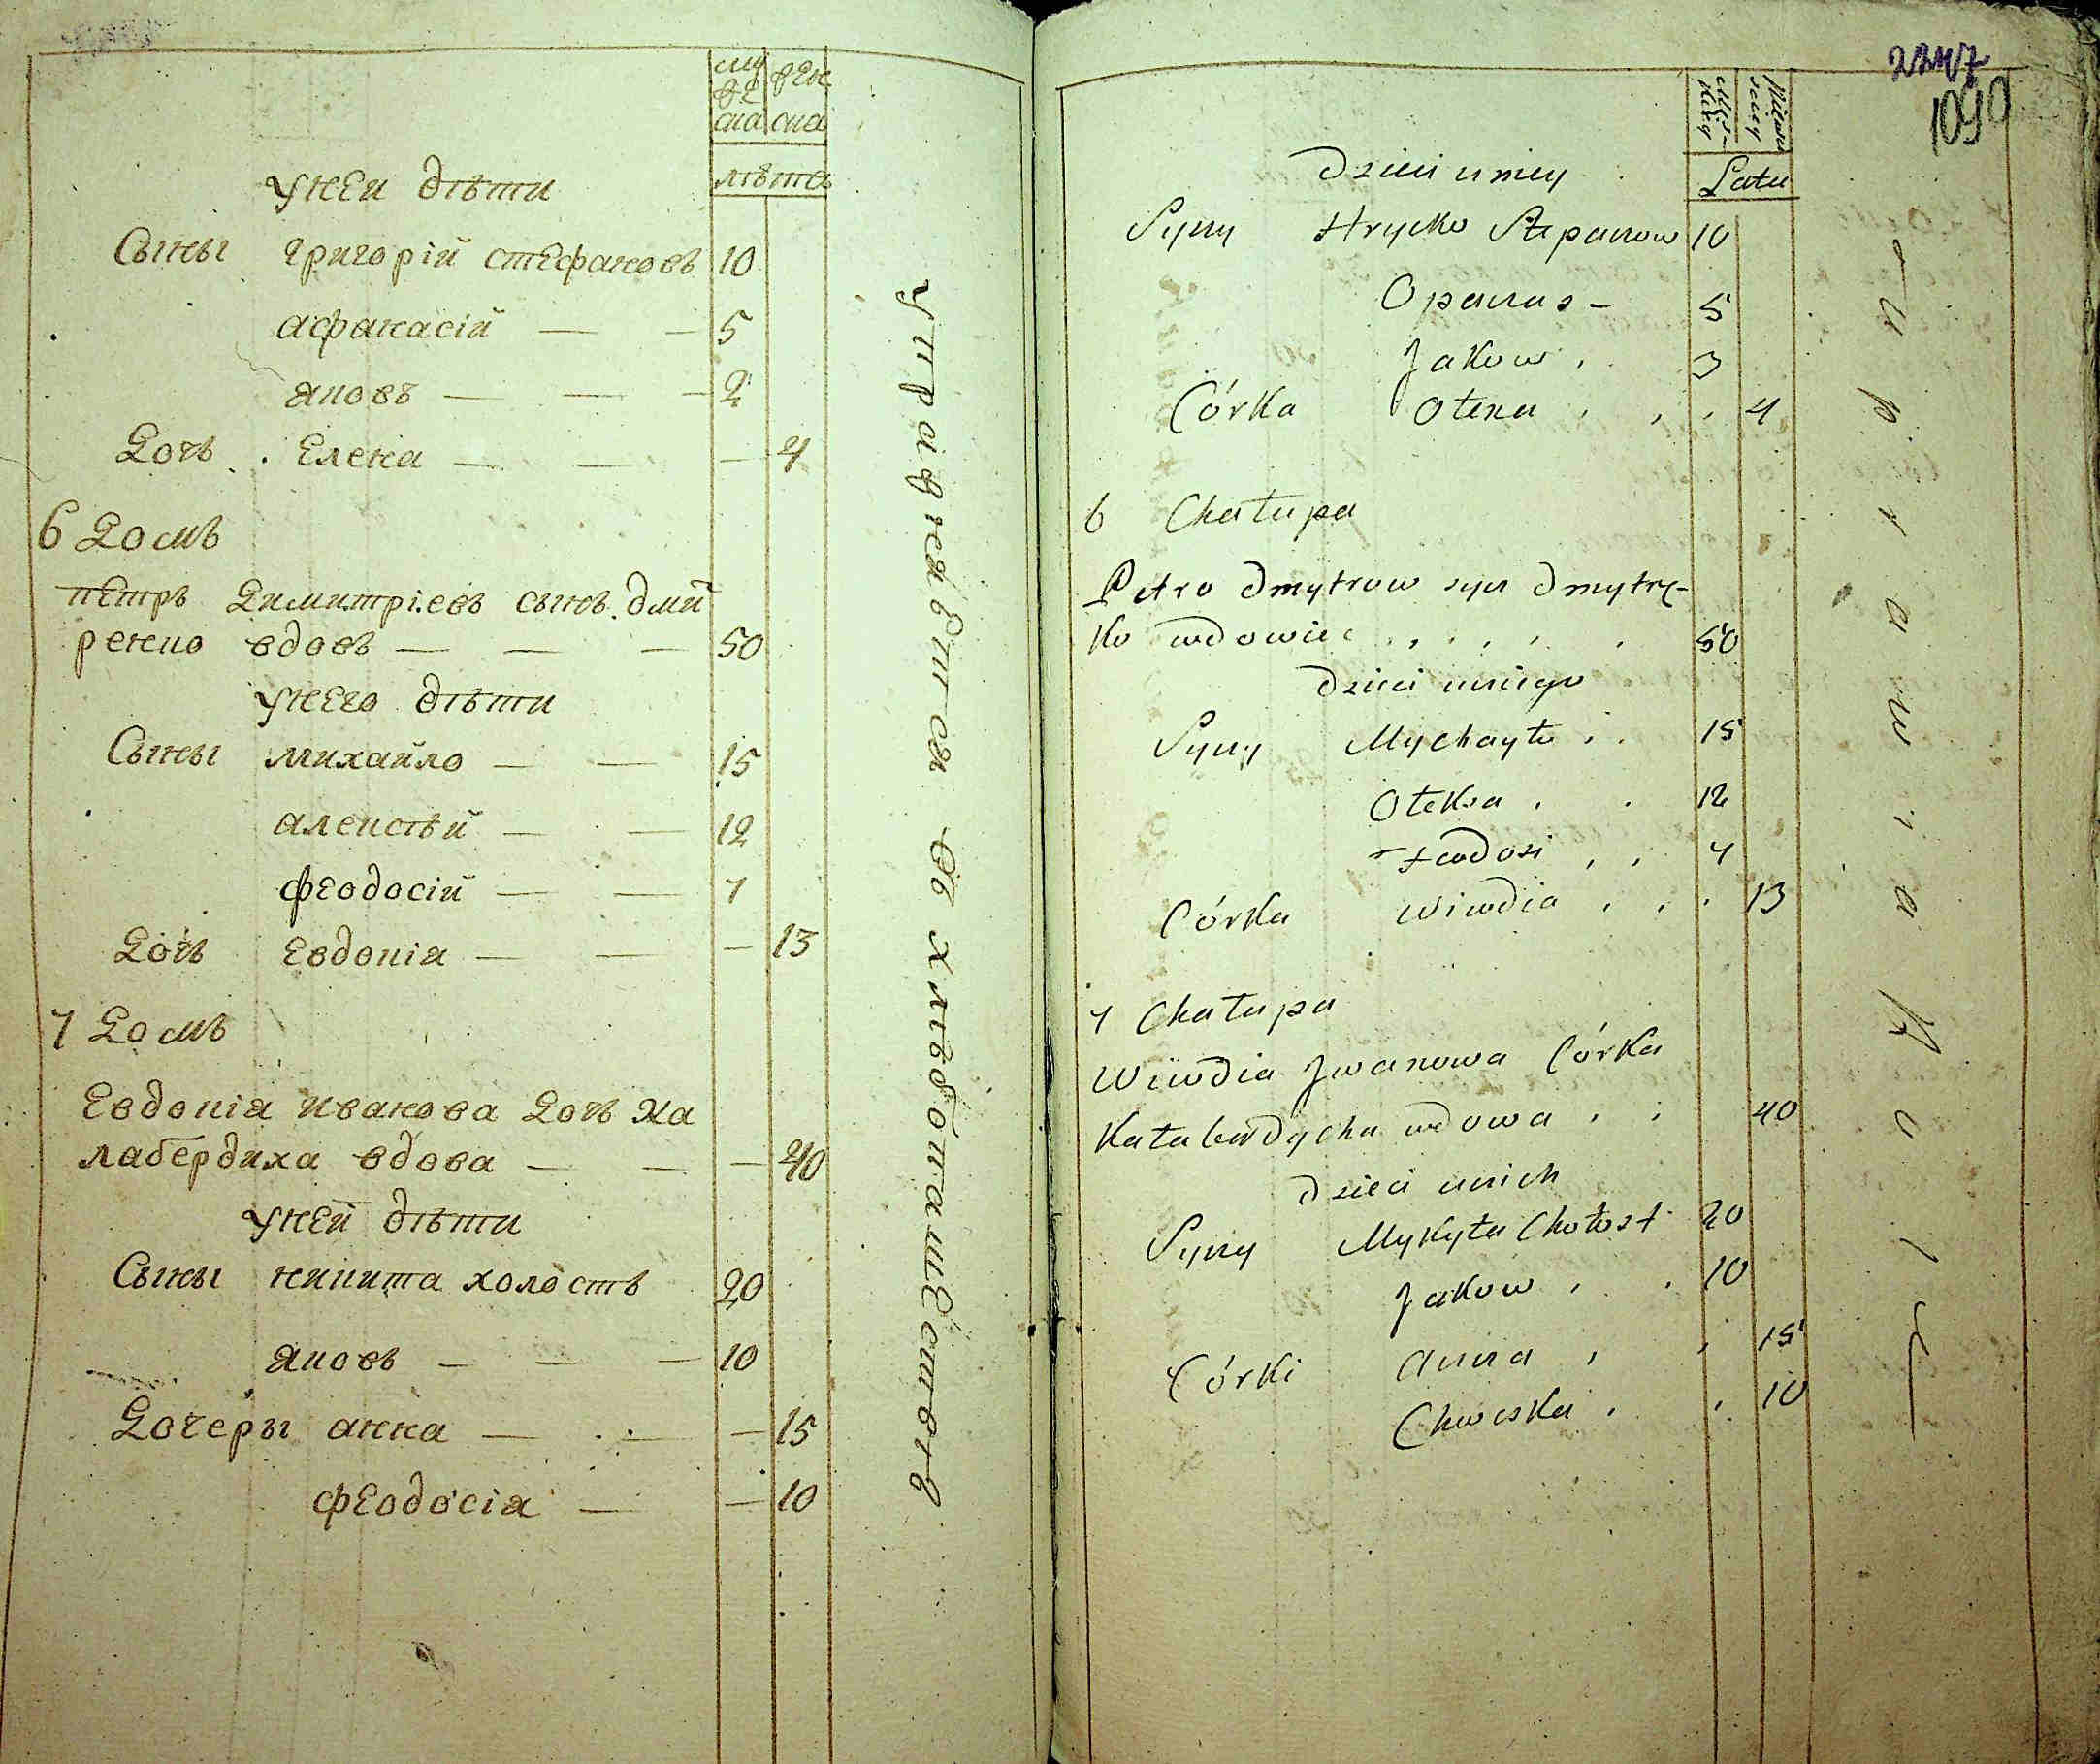 муже жен
ска ска
лѣта
у неи дѣти
Сыны григорїй стефановъ 10
афанасїй — — 5
яковъ — — — 2
Дочь Елена — — — 4
6 Домъ
петръ Димитрїевъ сынъ дми
ренко вдовъ — — — 50
у него дѣти
Сыны михайло — — 15
алексѣй — — 12
феодосїй — — 7
Дочь Евдокїя — — — 13
7 Домъ
Евдокїя иванова Дочь Ка
лабердиха вдова — — — 40
у ней дѣти
Сыны никита холостъ 20
яковъ — — — 10
Дочеры анна — — — 15
феодосїя — — 10
упражняется въ хлѣбопашествѣ
1090
Latu
Dzieci u niey
Syny Hrycko Stepanow 10
Opanas - 5
Jakow 3
Córka Ołena 4
6 Chałupa
Petro Dmytrow syn Dmytry-
ko wdowiec 50
Dzieci u niego
Syny Mychayło 15
Ołeksa 12
Feodosi 7
Córka Wiwdia 13
7 Chałupa
Wiwdia Jwanowa Córka
Kałaberdycha wdowa 40
Dzieci u nich
Syny Mykyta Chołost 20
Jakow 10
Córki Anna 15
Chweska 10
uprawia Rolę